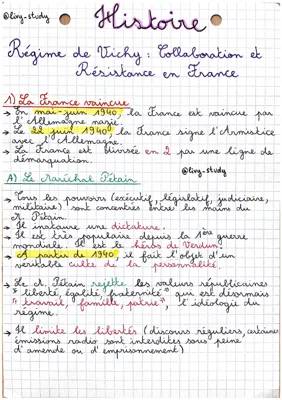 @livy-study
Histoire
Régime de Vichy : Collaboration et
Résistance en France
1) La France vaincue
→ En mai-juin 1940, la France est vaincue par
l'Allemagne nazie.
→ Le 22 juin 1940, la France signe l'Armistice
avec l'Allemagne.
→ La France est divisée en 2 par une ligne de
démarquation.
@livy-study
A) Le Maréchal Pétain
→ Tous les pouvoirs (exécutif, législatif, judiciaire,
militaire) sont concentrés entre les mains du
M. Pétain.
→ Il instaure une dictature.
→ Il est très populaire depuis la 1ère guerre
mondiale. Il est le héros de Verdun.
→ A partir de 1940, il fait l'objet d'un
véritable culte de la personnalité.
→ Le M. Pétain rejette les valeurs républicaines
"liberté, égalité, fraternité" qui est désormais
"travail, famille, patrie", l'idéologie du
régime.
→ Il limite les libertés (discours réguliers, certaines
émissions radio sont interdites sous peine
d'amende ou d'emprisonnement)